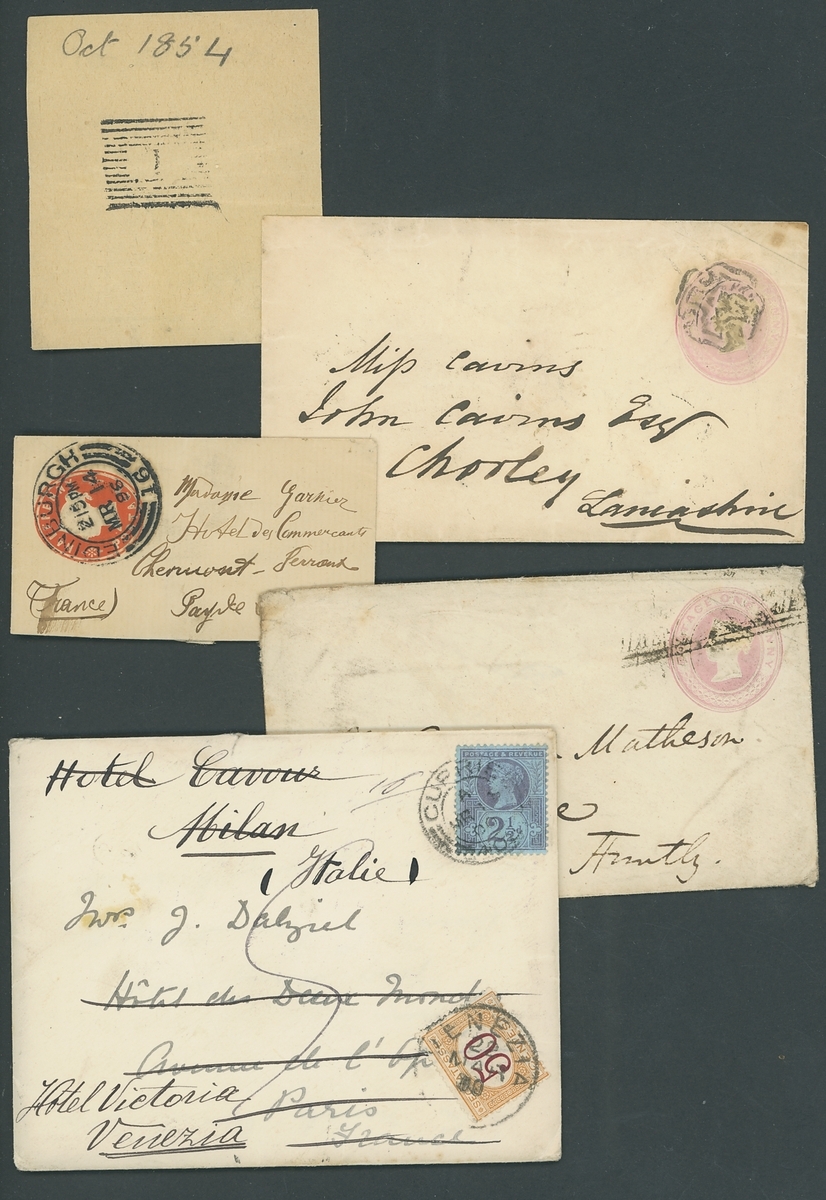 Oct 1854
Miss Cairns
John Cairns Esq
Chorley
Lancashire
EDINBURGH
91
2 15 PM
MR 14
98
Madame Garnier
Hotel des Commercants
Clermont-Ferrand
(France)
Puy de
POSTAGE ONE PENNY
Matheson
Huntly.
Hotel Cavour
Milan
(Italie)
Mrs. J. Dalziel
Hôtel des Deux Mondes
Avenue de l'Op
Paris
France
Hôtel Victoria
Venezia
POSTAGE & REVENUE
2½d
CUPAR
50
VENEZIA